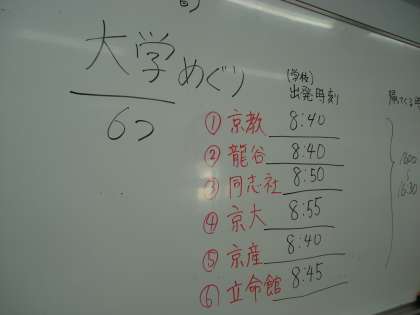 大学めぐり
6つ
(学校)
出発時刻
帰ってくる時
① 京教 8:40
② 龍谷 8:40
③ 同志社 8:50
④ 京大 8:55
⑤ 京産 8:40
⑥ 立命館 8:45
16:30